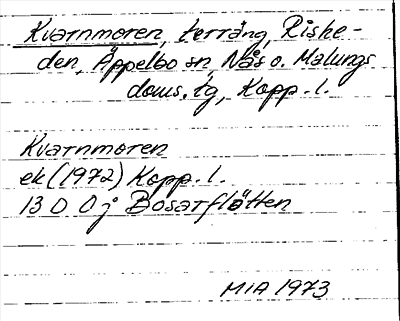 Kvarnmoren, terräng, Rishe-
den, Äppelbo sn, Nås o. Malungs
doms. tg, Kopp. l.
Kvarnmoren
ek (1972) Kopp. l.
13 D 0 j Bosarflötten
MIA 1973